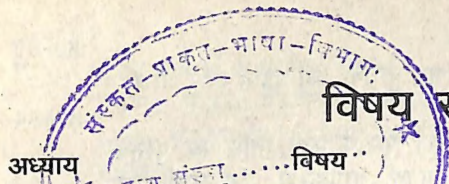 संस्कृत-प्राकृत-भाषा-विभागः
विषय
अध्याय ......विषय